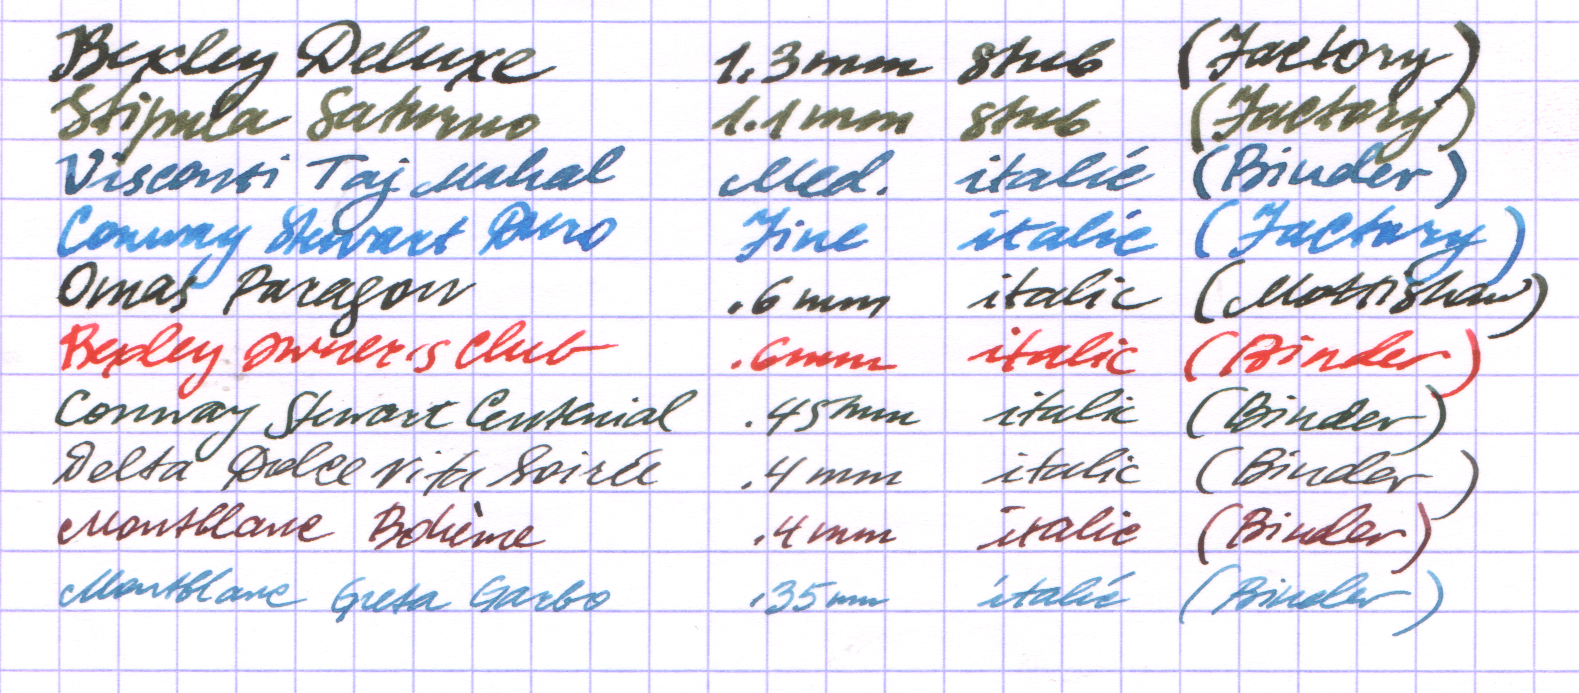 Bexley Deluxe 1.3mm stub (Factory)
Stipula Saturno 1.1mm stub (Factory)
Visconti Taj Mahal Med. italic (Binder)
Conway Stewart Duro Fine italic (Factory)
Omas Paragon .6mm italic (Mottishaw)
Bexley Owner's Club .6mm italic (Binder)
Conway Stewart Centenial .45mm italic (Binder)
Delta Dolce Vita Soirée .4mm italic (Binder)
Montblanc Bohème .4mm italic (Binder)
Montblanc Greta Garbo .35mm italic (Binder)